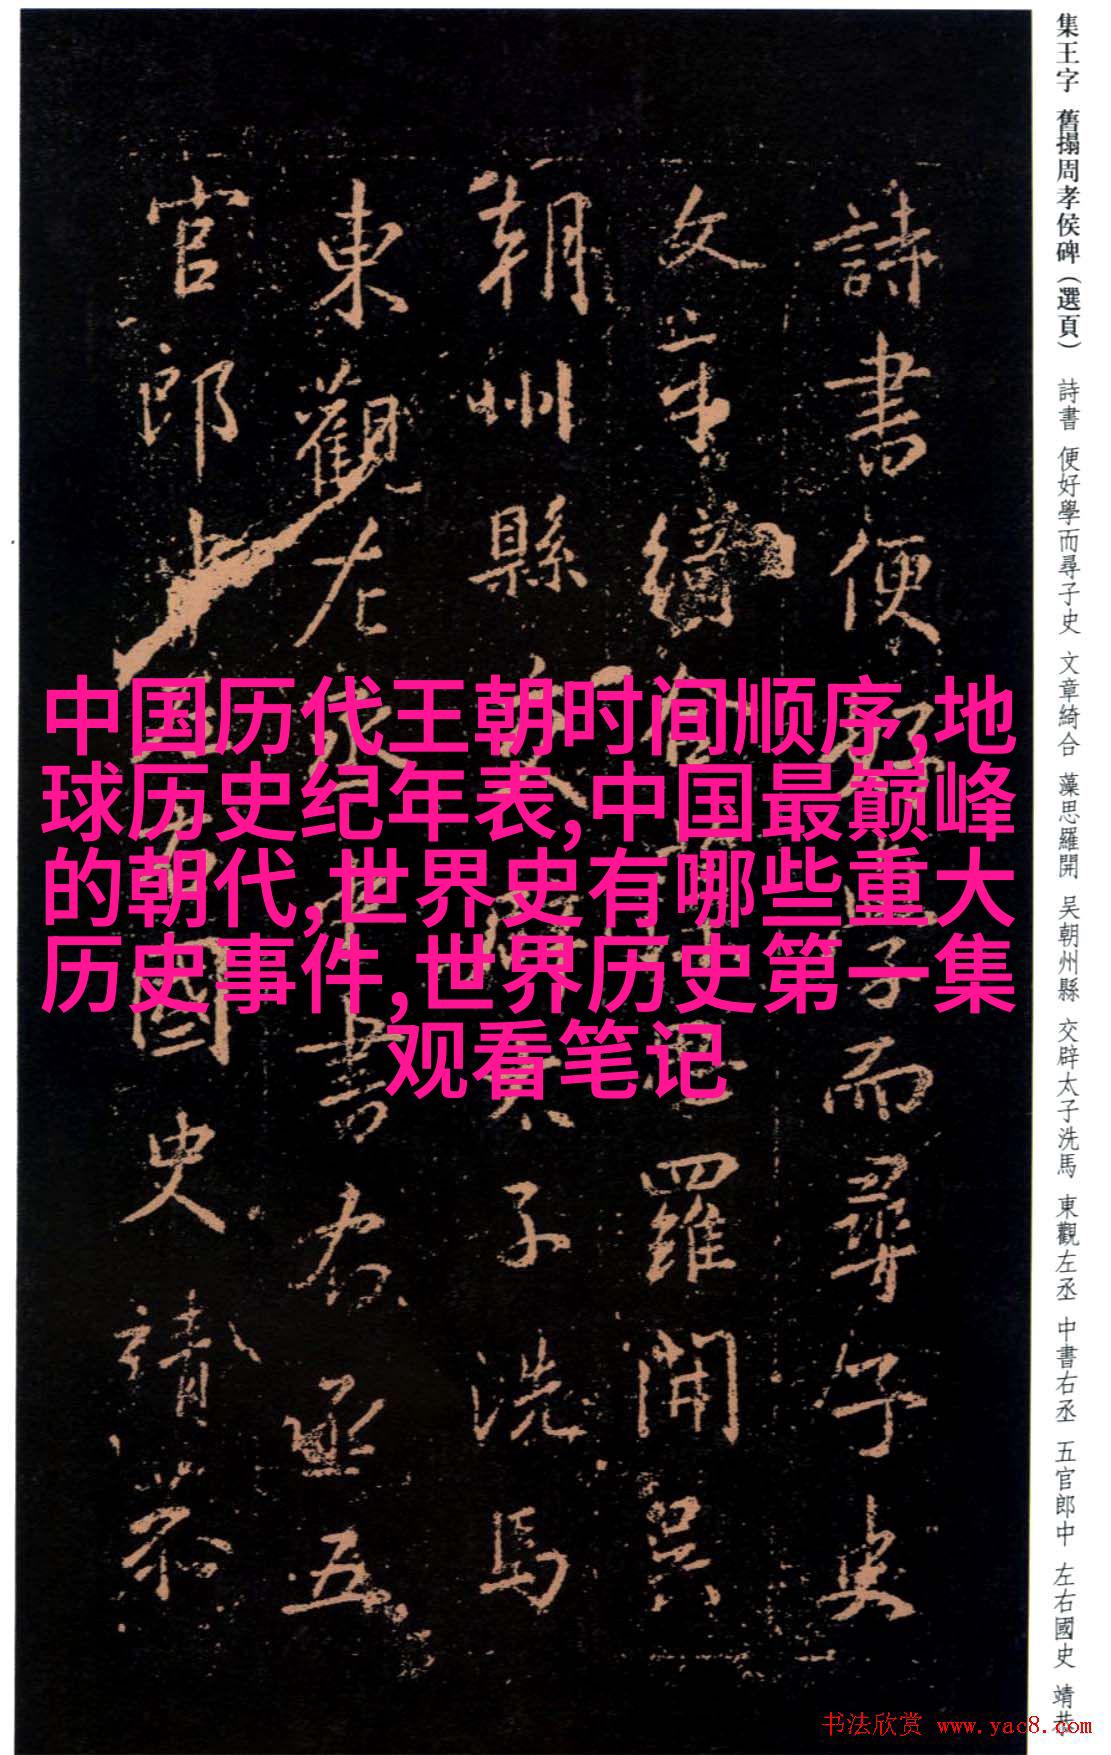 集王字 舊搨周孝侯碑(選頁) 詩書 便好學而尋子史 文章綺合 藻思羅開 吳朝州縣 交辟太子洗馬 東觀左丞 中書右丞 五官郎中 左右國史 靖恭
詩書便好學而尋子史
文章綺合藻思羅開吳
朝州縣交辟太子洗馬
東觀左丞中書右丞五
官郎中左右國史靖恭
中国历代王朝时间顺序,地
球历史纪年表,中国最巅峰
的朝代,世界史有哪些重大
历史事件,世界历史第一集
观看笔记
书法欣赏 www.yac8.com